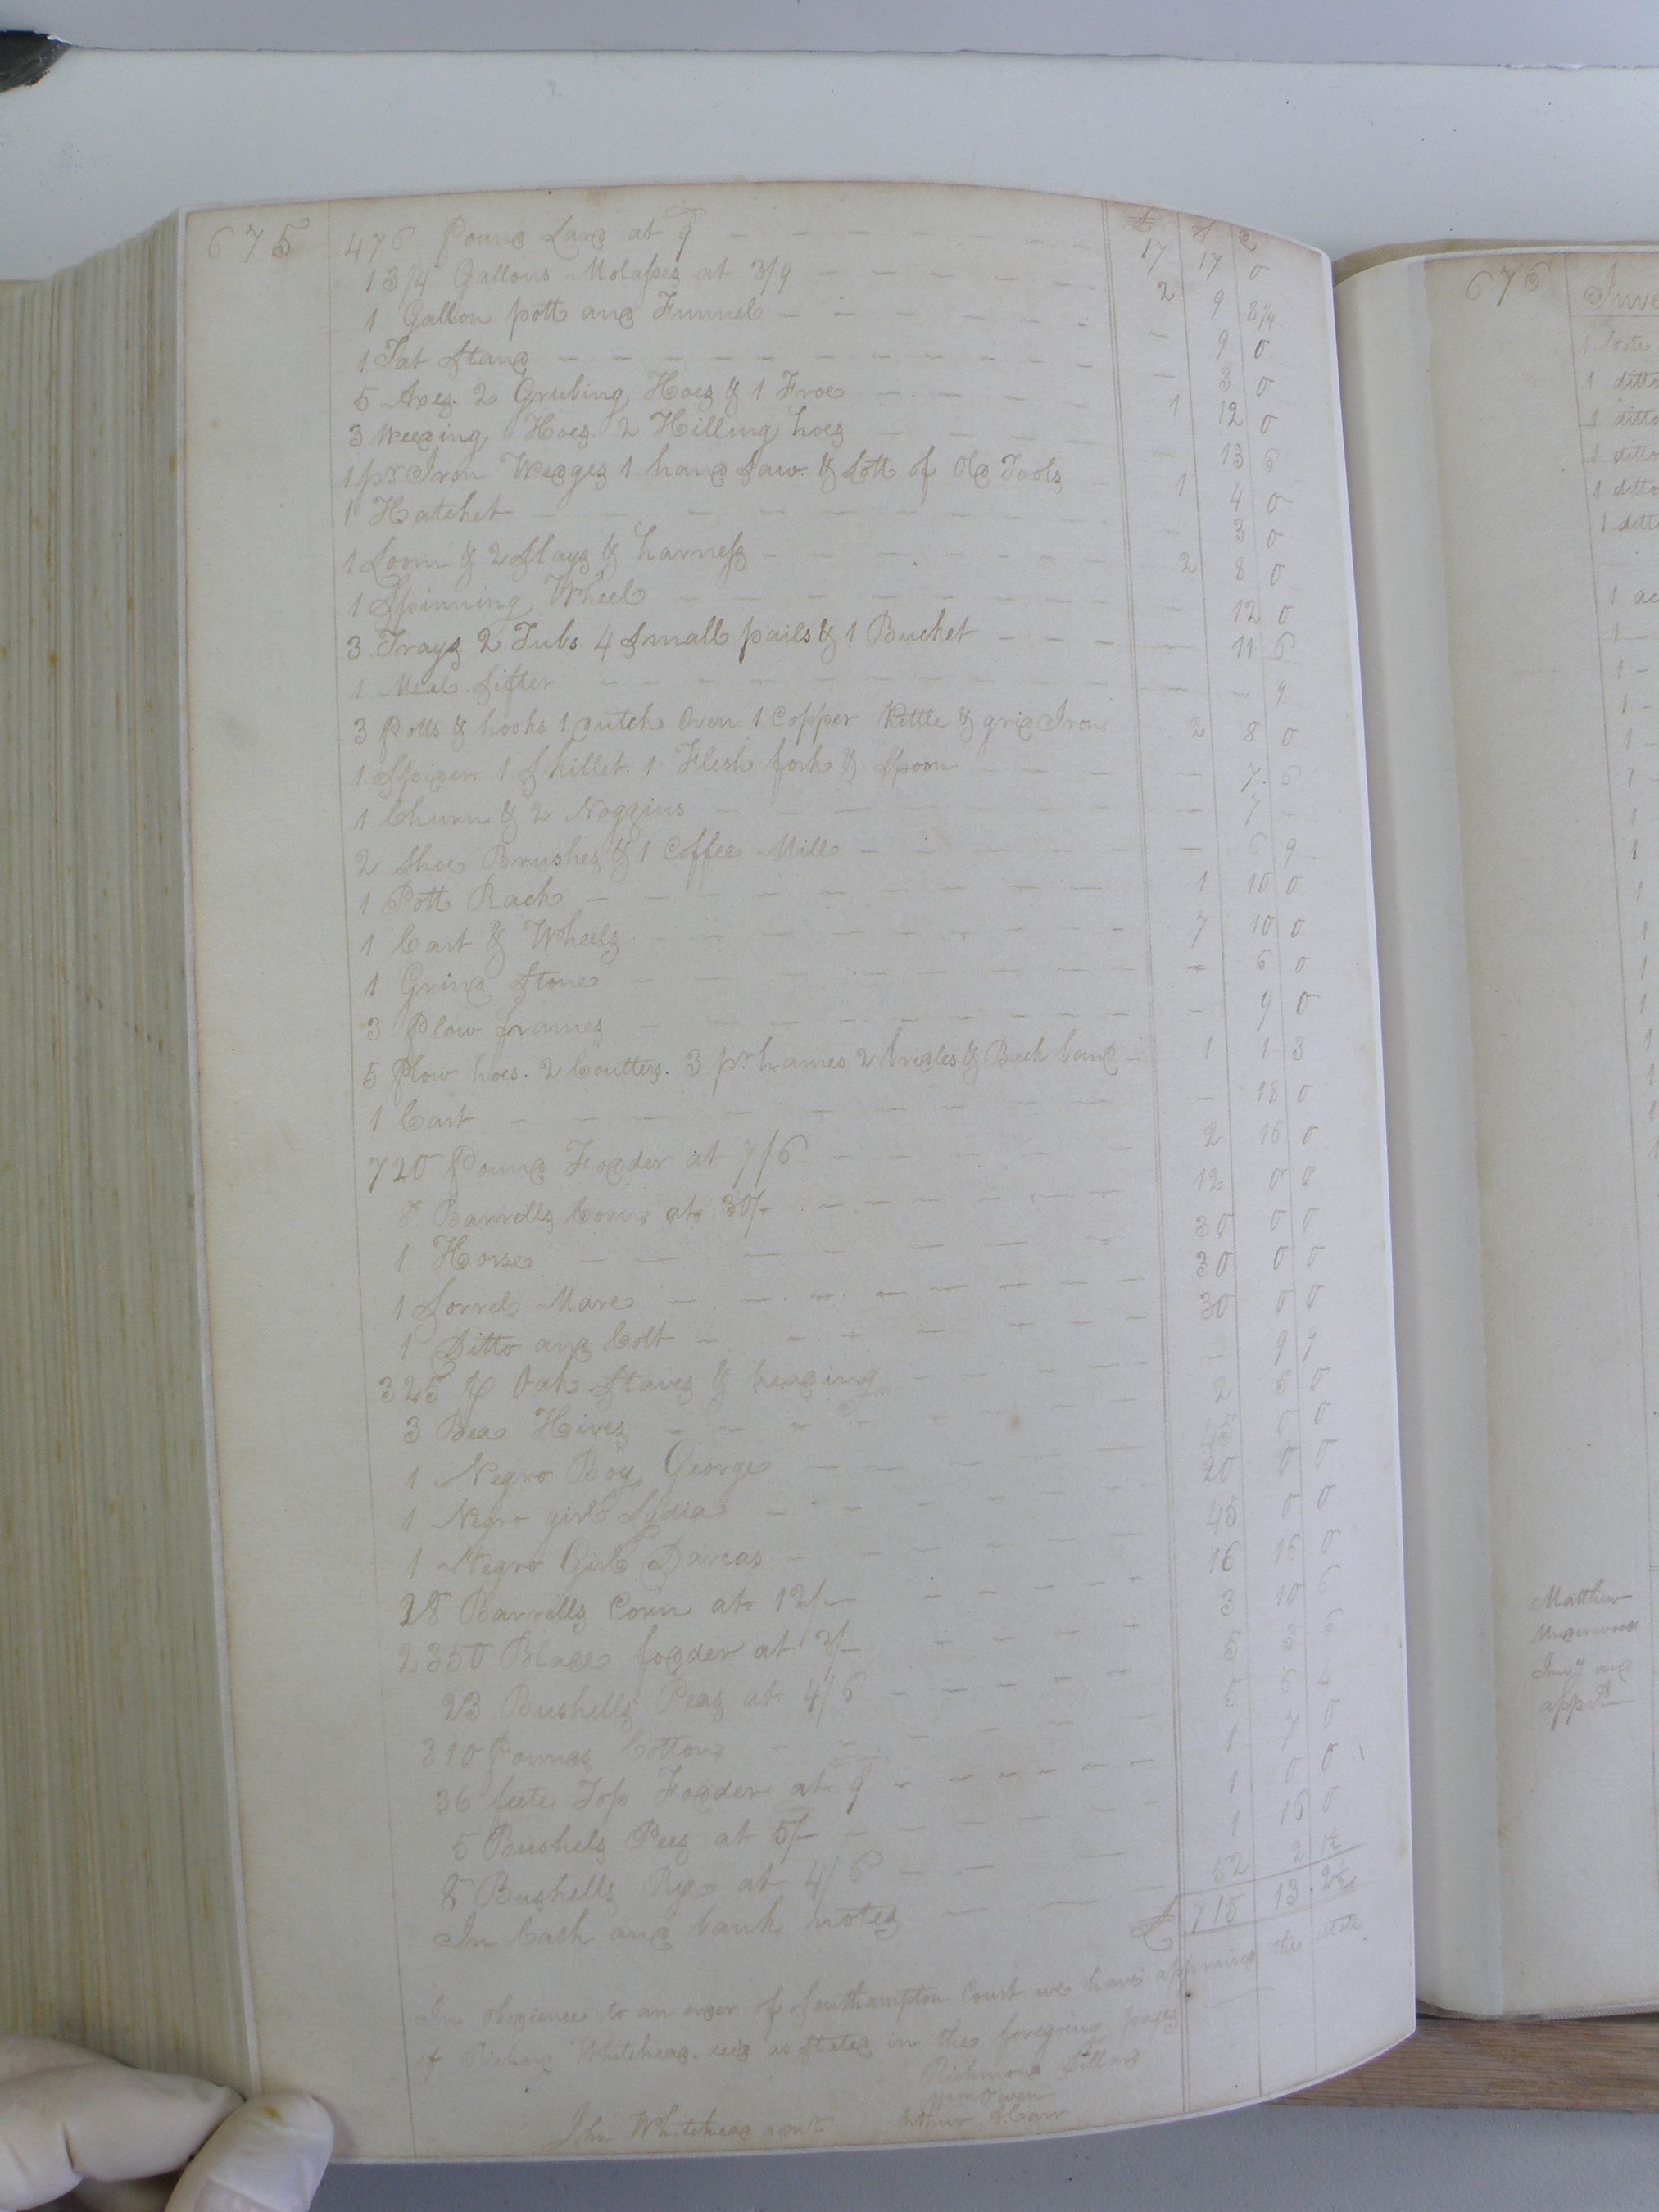 675
£ s d
476 Pound Lard at 9 — 17 17 0
13 1/4 Gallons Molasses at 3/9 — 2 9 8 1/4
1 Gallon pott and Funnel — — 9 0
1 Fat Stand — — 3 0
5 Axes. 2 Grubing Hoes & 1 Froe — 1 12 0
3 Weeding Hoes. 2 Hilling hoes — — 13 6
1 pr Iron Wedges 1. hand Saw. & Lott of Old Tools — 1 4 0
1 Hatchet — — 3 0
1 Loom & 2 Slays & harness — 2 8 0
1 Spinning Wheel — — 12 0
3 Trays 2 Tubs. 4 Small pails & 1 Bucket — — 11 6
1 Meal Sifter — — — 9
3 Potts & hooks 1 dutch Oven 1 Copper Kettle & grid Iron 2 8 0
1 Spider 1 Skillet. 1 Flesh fork & Spoon — — 7. 6
1 Churn & 2 Noggins — — 7 —
2 Shoe Brushes & 1 Coffee Mill — — 6 9
1 Pott Rack — 1 10 0
1 Cart & Wheels — 7 10 0
1 Grind Stone — — 6 0
3 Plow frames — — 9 0
5 Plow hoes. 2 Coulters. 3 pr hames 2 bridles & Back band — 1 1 3
1 Cart — — 18 0
720 Pound Fodder at 7/6 — 2 16 0
8 Barrells Corn at 30/- — 12 0 0
1 Horse — 30 0 0
1 Sorrel Mare — 30 0 0
1 Ditto and Colt — 30 0 0
325 Oak Staves & heading — — 9 9
3 Bea Hives — 2 5 0
1 Negro Boy George — 45 0 0
1 Negro girl Lydia — 20 0 0
1 Negro Girl Darcas — 45 0 0
28 Barrells Corn at 12/- — 16 16 0
2350 Blade fodder at 3/- — 3 10 6
23 Bushells Peas at 4/6 — 5 3 6
310 Pounds Cotton — 5 6 4
36 feete Top Fodder at 9 — 1 7 0
5 Bushels Pees at 5/- — 1 0 0
8 Bushells Rye at 4/6 — 1 16 0
In Cash and bank notes — 52 2 1 1/2
£ 715 13. 2 3/4
In obedience to an order of Southampton Court we have appraised the estate
of Richard Whitehead. decd as stated in the foregoing pages
Richmond
John Whitehead
676
1 ditto
1 ditto
1 ditto
1 ditto
Matthew
Underwood
Invy and
apprt